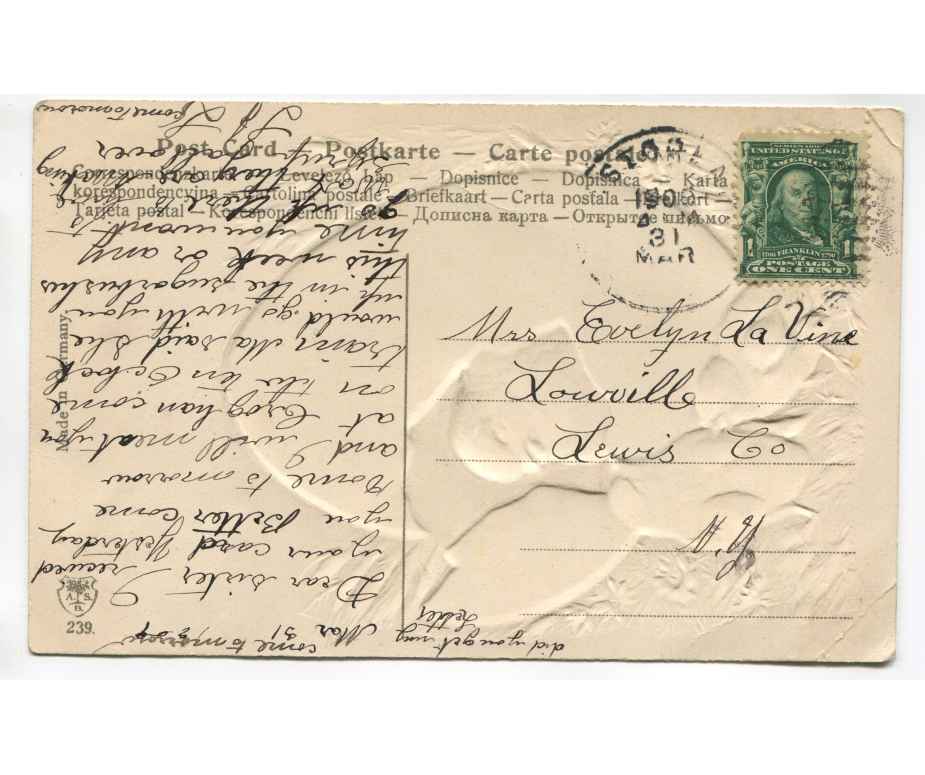 Post Card — Postkarte — Carte postale
Correspondenzkarte — Levelező-Lap — Dopisnice — Dopisnica — Karta
korespondencyjna — Cartolina postale — Briefkaart — Carta postala — Brefkort —
Tarjeta postal — Korespondenchi listek — Дописна карта — Открытое письмо
1908
31
MAR
SERIES 1902
UNITED STATES OF
AMERICA
1706 FRANKLIN 1790
POSTAGE
1 ONE CENT 1
Mrs Evelyn La Vine
Louville
Lewis Co
N.Y.
Made in Germany.
A. S.
B.
239.
Mar 31
Dear sister I recived
your card yesterday
you Better come
come to morow
and I will meat you
at Croghan come
on the ten Oclock
train Ma said she
would go with you
up in the sugarbushs
this week or any
time you want to
go
come to morow
did you get my
Letter